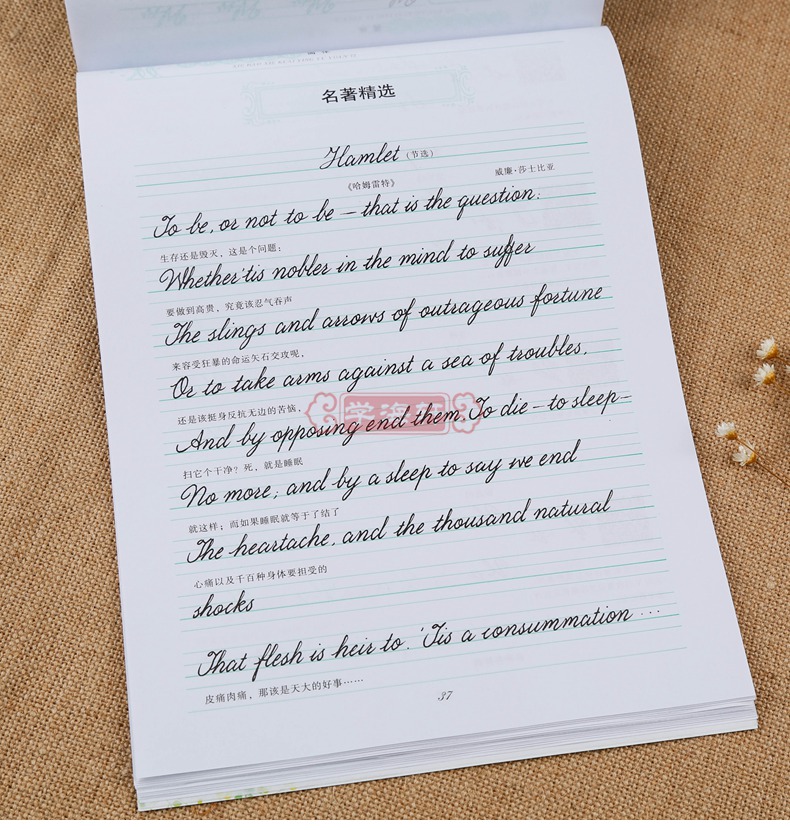 名著精选
Hamlet (节选)
《哈姆雷特》 威廉·莎士比亚
To be, or not to be – that is the question:
生存还是毁灭，这是个问题：
Whether 'tis nobler in the mind to suffer
要做到高贵，究竟该忍气吞声
The slings and arrows of outrageous fortune
来容受狂暴的命运矢石交攻呢，
Or to take arms against a sea of troubles,
还是该挺身反抗无边的苦恼，
And by opposing end them. To die – to sleep –
扫它个干净？死，就是睡眠
No more; and by a sleep to say we end
就这样；而如果睡眠就等于了结了
The heartache, and the thousand natural
心痛以及千百种身体要担受的
shocks
That flesh is heir to. 'Tis a consummation ...
皮痛肉痛，那该是天大的好事……
37